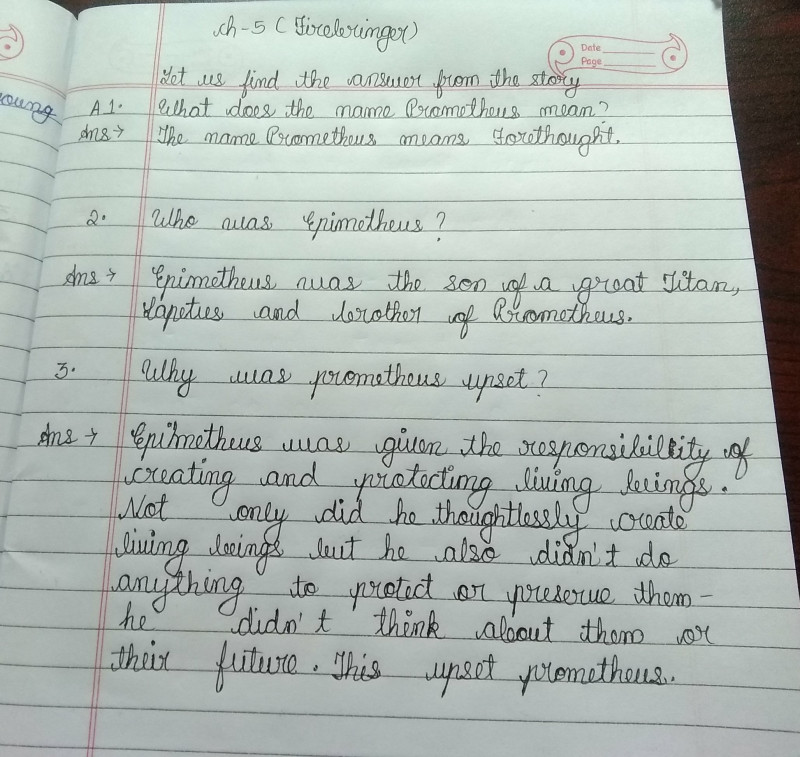 Ch-5 (Firebringer)
Date
Page
Let us find the answer from the story
young
A 1. What does the name Prometheus mean?
Ans → The name Prometheus means Forethought.
2. Who was Epimetheus?
Ans → Epimetheus was the son of a great Titan,
Iapetus and brother of Prometheus.
3. Why was prometheus upset?
Ans → Epimetheus was given the responsibility of
creating and protecting living beings.
Not only did he thoughtlessly create
living beings but he also didn't do
anything to protect or preserve them-
he didn't think about them or
their future. This upset prometheus.